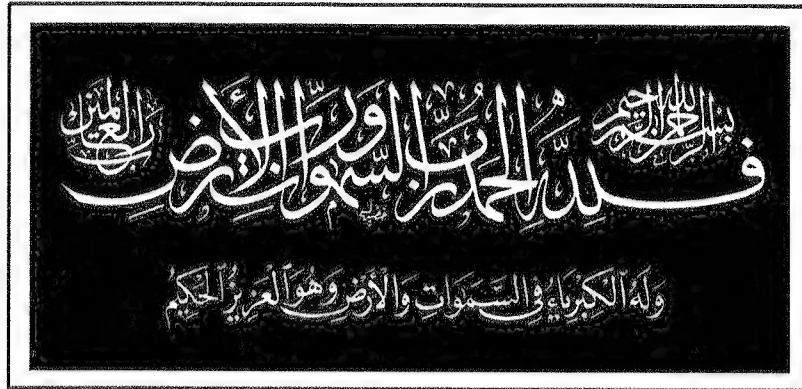 بسم الله الرحمن الرحيم
فلله الحمد رب السموات ورب الأرض
رب العالمين
وَلَهُ ٱلْكِبْرِيَاءُ فِي السَّمَوَاتِ وَالْأَرْضِ وَهُوَ ٱلْعَزِيزُ ٱلْحَكِيمُ